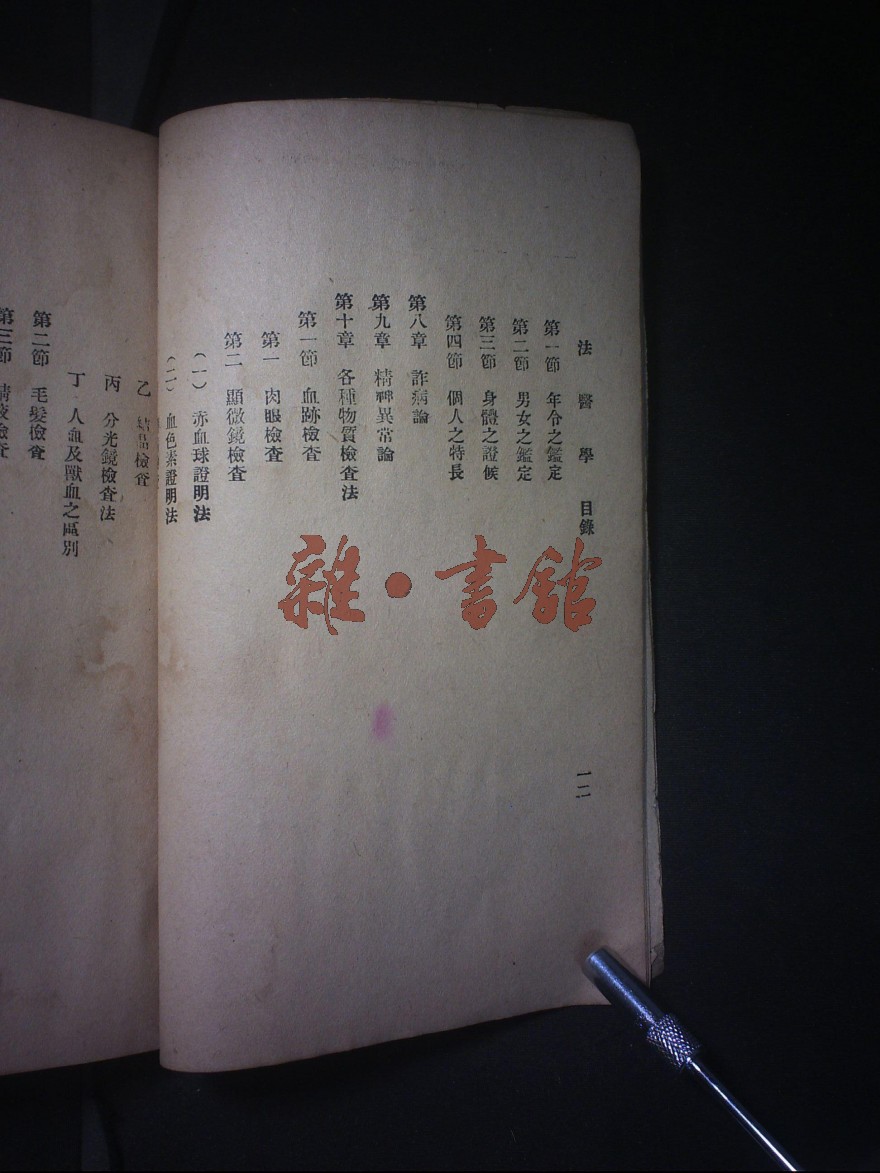 法醫學 目錄
一二
第一節 年令之鑑定
第二節 男女之鑑定
第三節 身體之證候
第四節 個人之特長
第八章 詐病論
第九章 精神異常論
第十章 各種物質檢查法
第一節 血跡檢查
第一 肉眼檢查
第二 顯微鏡檢查
(一) 赤血球證明法
(二) 血色素證明法
乙 結晶檢查
丙 分光鏡檢查法
丁 人血及獸血之區別
第二節 毛髮檢查
第三節 精液檢查
雜·書館